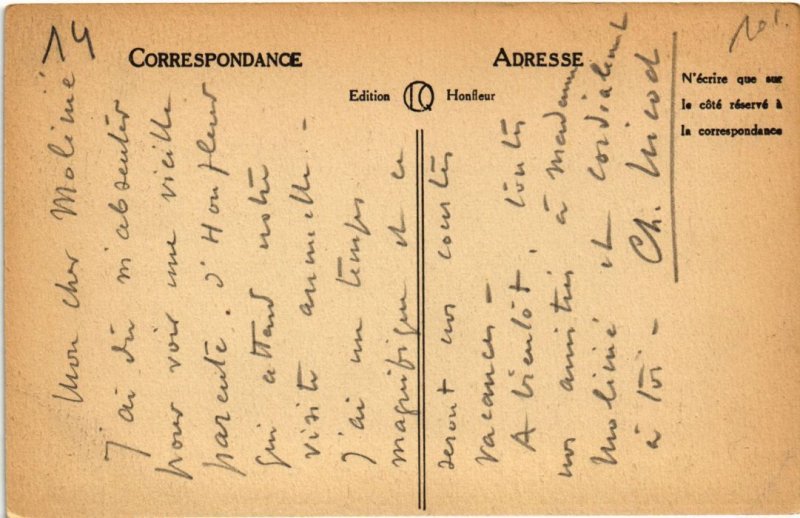 14
CORRESPONDANCE
ADRESSE
Edition
Honfleur
N'écrire que sur
le côté réservé à
la correspondance
Mon cher Molinié
J'ai dû m'absenter
pour voir une vieille
parente d'Honfleur
qui attend notre
visite annuelle -
J'ai un temps
magnifique et ce
seront nos courtes
vacances -
A bientôt, toutes
nos amitiés à madame
Molinié et cordialement
à toi - Ch. Nicod